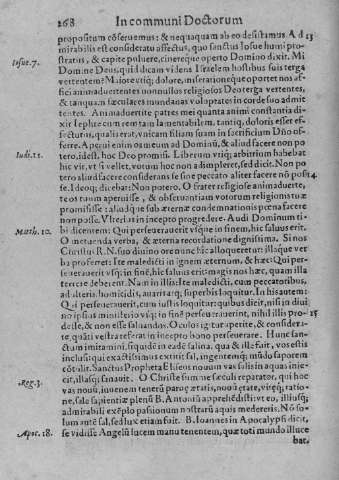 268 In communi Doctorum
propositum cōseruemus: & nequaquam ab eo desistamus. Ad 13
mirabilis est consideratu affectus, quo sanctus Iosue humi pro-
Iosue.7. stratus, & capite puluere, cinereque operto Domino dixit. Mi
Domine Deus, quid dicam videns Israelem hostibus suis terga
vertentem? Maiore vtiq; dolore, miserationeque oportet nos af-
fici animaduertentes nonnullos religiosos Deo terga vertentes,
& tanquam sæculares mundanas voluptates in corde suo admit
tentes. Animaduertite patres mei quanta animi constantia di-
xit Iephte cum rem tam lamentabilem, tantiq; doloris esset ef-
fecturus, qualis erat, vnicam filiam suam in sacrificium Dño of-
ferre. Aperui enim os meum ad Dominū, & aliud facere non po
Iudi.11. tero, idest, hoc Deo promisi. Liberum vtiq; arbitrium habebat
hic vir, vt si vellet, votum hoc non adimpleret, sed dicit. Non po
tero aliud facere considerans se sine peccato aliter facere nō posi 14
se. Ideoq; dicebat: Non potero. O frater religiose animaduerte,
te os tuum aperuisse, & obseruantiam votorum religionis tuæ
promisisse: aliudque sub æternæ condemnationis pœna facere
non posse. Vt reris at in cœpto progredere. Audi Dominum ti-
Math. 10. bi dicentem: Qui perseuerauerit vsque in finem, hic saluus erit.
O metuenda verba, & æterna recordatione dignissima. Si nos
Christus R. N. suo diuino ore nunc hic alloqueretur: illaque ver
ba proferret: Ite maledicti in ignem æternum, & hæc: Qui per-
seuerauerit vsq; in finē, hic saluus erit: magis nos hæc, quam illa
terrere deberent. Nam in illis: Ite maledicti, cum peccatoribus,
adulteris, homicidis, auaritijq; superbis loquitur. In his autem:
Qui perseuerauerit, cum iustis loquitur: quibus dicit, nisi in diui
no ipsius ministerio vsq; in finē perseuerauerint, nihil illis pro- 15
desse, & non esse saluandas. Oculos igitur aperite, & considera-
te, quāti vestra referat in incepto bono perseuerare. Hunc san-
ctum imitamini, siquidē in eadē salina, qua & ille fuit, vos estis
inclusi: qui exactissimus extitit sal, ingentemq; mūdo saporem
cōtulit. Sanctus Propheta Eliseus nouum vas salis in aquas inie-
Reg.3. cit, illasq; sanauit. O Christe summe sæculi reparator, qui hoc
vas nouū, inuenem tenerū paruæ ætatis, noua ætate, viresq; ratio-
ne, sale sapientiæ plenū B. Antoniū apprehēdisti: vt eo, illiusq;
admirabili exēplo passionum nostrarū aquis medereris. Nō so-
lum autē sal, sed lux etiam fuit. B. Ioannes in Apocalypsi dicit,
Apoc. 18. se vidisse Angelū lucem manu tenentem, quæ toti mundo illuce
bat.